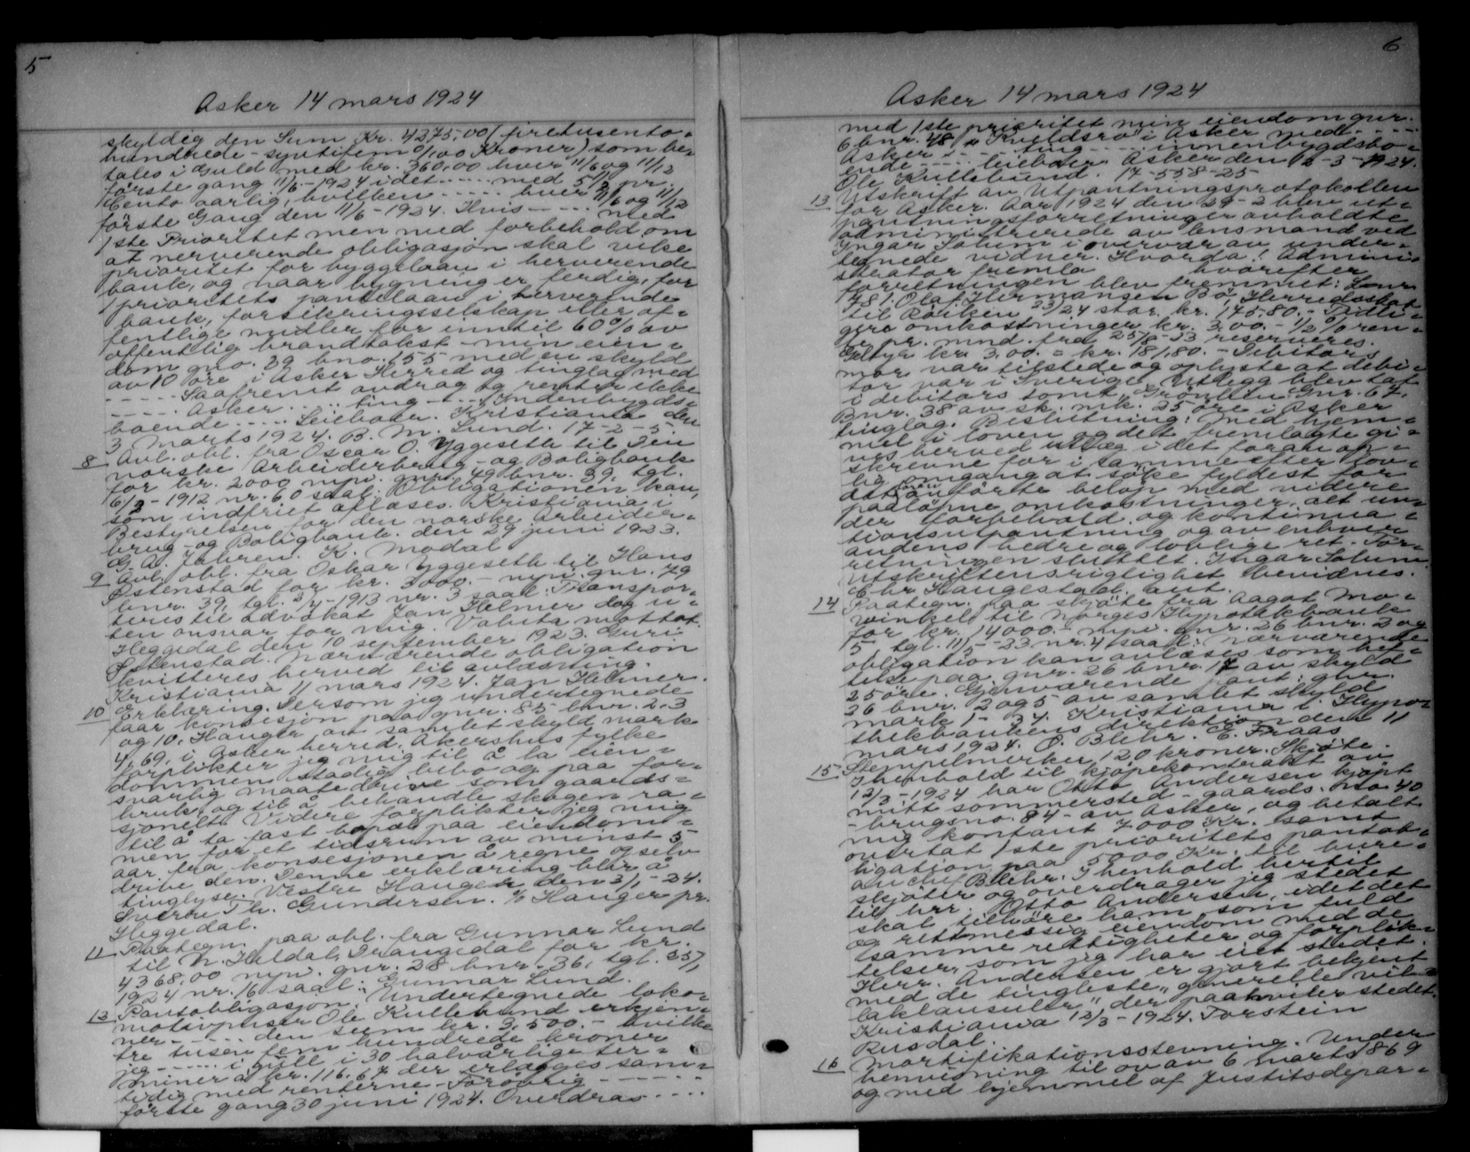 5
Asker 14 mars 1924
skyldig den Sum Kr. 4275.00 (firetusento-
hundrede-syttifem 0/100 Kroner) som be-
tales i Guld med kr. 360,00 hver 11/6 og 11/12
første gang 11/6-1924 idet ..... med 5 1/2 pr.
Cento aarlig, hvilken ..... hver 11/6 og 11/12
første Gang den 11/6-1924. Hvis ----- med
1ste Prioritet men med forbehold om
at nerverende obligasjon skal vike
prioritet for byggelaan i herverende
bank, og naar bygning er ferdig, for
1 prioritets pantelaan i herverende
bank, forsikringsselskap eller of-
fentlige midler for inntil 60% av
offentlig brandtakst - min eien-
dom gno. 39 bno. 155 med en skyld
av 10 øre i Asker Herred og tinglag med
----- Saafremt avdrag og renter ikke
----- Asker .... ting ---- Indenbygds-
boende ..... Leieboer. Kristiania den
3 marts 1924. B. M. Lund. 17-2-5.
8 Avl. obl. fra Oscar O. Yggeseth til Den
norske Arbeiderbruk- og Boligbank
for kr. 2000 nyv. gnr. 49 bnr. 39, tgl.
6/2-1912 nr. 60 saal: Obligationen kan,
som indfriet aflæses. Kristiania i
Bestyrelsen for den norske Arbeider-
brug- og Boligbank. den 29 juni 1923.
G. A. Jahren. K. Modal
9 Avl. obl. fra Oskar Yggeseth til Hans
Østenstad for kr. 3000.- nyv. gnr. 49
bnr. 39, tgl. 3/4-1913 nr. 3 saal: Transpor-
teres til advokat Jan Helmer dog u-
ten ansvar for mig. Valuta mottat.
Heggedal den 10 september 1923. Guri
Østenstad. Nærværende obligation
kvitteres herved til avlæsning.
Kristiania 11 mars 1924. Jan Helmer.
10 Erklæring. Dersom jeg undertegnede
faar konsesjon paa gnr. 85 bnr. 2.3
og 10, Hauger av samlet skyld mark
4,69, i Asker herred. Akershus fylke
forplikter jeg mig til å la eien-
dommen stadig bebo og paa for-
svarlig maate drive som gaards-
bruk og til å behandle skogen ra-
sjonelt. Videre forplikter jeg mig
til å ta fast bopæl paa eiendom-
men for et tidsrum av minst 5
aar fra konsesjonen å regne og selv
drive den. Denne erklæring blir å
tinglyse. Vestre Haugen den 3/1-24.
Sverre Th. Gundersen. % Hauger pr.
Heggedal.
11 Paategn. paa obl. fra Gunnar Lund
til N. Huldal, Drangedal for kr.
4368.00 nyv. gnr. 28 bnr. 36, tgl. 25/1
1924 nr. 16 saal: Gunnar Lund.
12 Pantobligasjon. Undertegnede loko-
motivpuser Ole Kullebund erkjen-
ner ----- den sum kr. 3.500.- hvilke
tre tusen fem hundrede kroner
jeg ----- i gull i 30 halvårlige ter-
miner à kr. 116.67 der erlægges sam-
tidig med renterne - Forøvrig ------
første gang 30 juni 1924. Overdras ....
6
Asker 14 mars 1924
med 1ste prioritet min eiendom gnr.
6 bnr. 48, "Kveldsro" i Asker med ----
Asker .... ting .... innenbygdsbo-
ende .... leieboer. Asker den 12-3-1924.
Ole Kullebund. 17-558-25
13 Utskrift av Utpantningsprotokollen
for Asker. Aar 1924 den 29-2 blev ut-
pantningsforretninger avholdte
administrerede av lensmand ved
Yngar Solum i overvær av under-
tegnede vidner. Hvorda! Admini-
strator fremla hvorefter
forretningen blev fremmet: Lnr.
481. Olaf Hermansen Bø, Herredsskat
til Røiken 23/24 stor kr. 175.80.- Tidli-
gere omkostninger kr. 3.00.- 1/2 % ren-
te pr. mnd. fra 25/8-23 reserveres.
Gebyr kr. 3.00. = kr. 181.80. - Debitors
mor var tilstede og oplyste at debi-
tor var i Sverige. Utlegg blev tat
i debitors tomt, Grønlien Gnr. 67,
Bnr. 38 av sk. mk. 25 øre i Asker
tinglag. Beslutning: Med hjem-
mel i loven og det fremlagte gi-
ves herved utlæg i det foran op-
skrevne for i samme efter lov-
lig omgang at søke fyldest for
det anførte beløp med videre
paaløpne omkostninger, alt un-
der forbehold og kontinua-
tionsutpantning og av enhver
andens bedre og lovlige ret. For-
retningen sluttet. Yngar Solum.
Utskriftens rigtighet bevidnes.
Chr. Haugestad, avt.
14 Paategn. paa skjøte fra Aagot Mo-
winkel til Norges Hypothekbank
for kr. 14000.- nyv. gnr. 26 bnr. 2 og
5 tgl. 11/5-23 nr. 4 saal: Nærværende
obligation kan avlæses som hef-
telse paa gnr. 26 bnr. 17 av skyld
25 øre. Gjenværende pant: gnr.
26 bnr. 2 og 5 av samlet skyld
mark 1-34. Kristiania i Hypo-
thekbankens direktion den 11
mars 1924. O. Blehr. E. Fraas
15 Stempelmerker 120 kroner. Skjøte.
I henhold til kjøpekontrakt av
12/3-1924 har Otto Andersen kjøpt
mitt sommersted - gaards. No. 40
- brugsno. 84 - av Asker, og betalt
mig kontant 7000 Kr. samt
overtat 1ste prioritets pantob-
ligation paa 5000 Kr. til bure-
auchef Blehr. I henhold hertil
skjøter og overdrager jeg stedet
til hr. Otto Andersen, idet det
skal tilhøre ham som fuld
og rettmessig eiendom med de
samme rettigheter og forplik-
telser som jeg har eiet stedet.
Herr. Andersen er gjort bekjent
med de tingleste "generelle vil-
laklausuler" der paahviler stedet.
Kristiania 12/3-1924. Torstein
Rusdal.
16 Mortifikationsstevning. Under
henvisning til lov av 6 marts 1869
og med hjemmel af Justitsdepar-